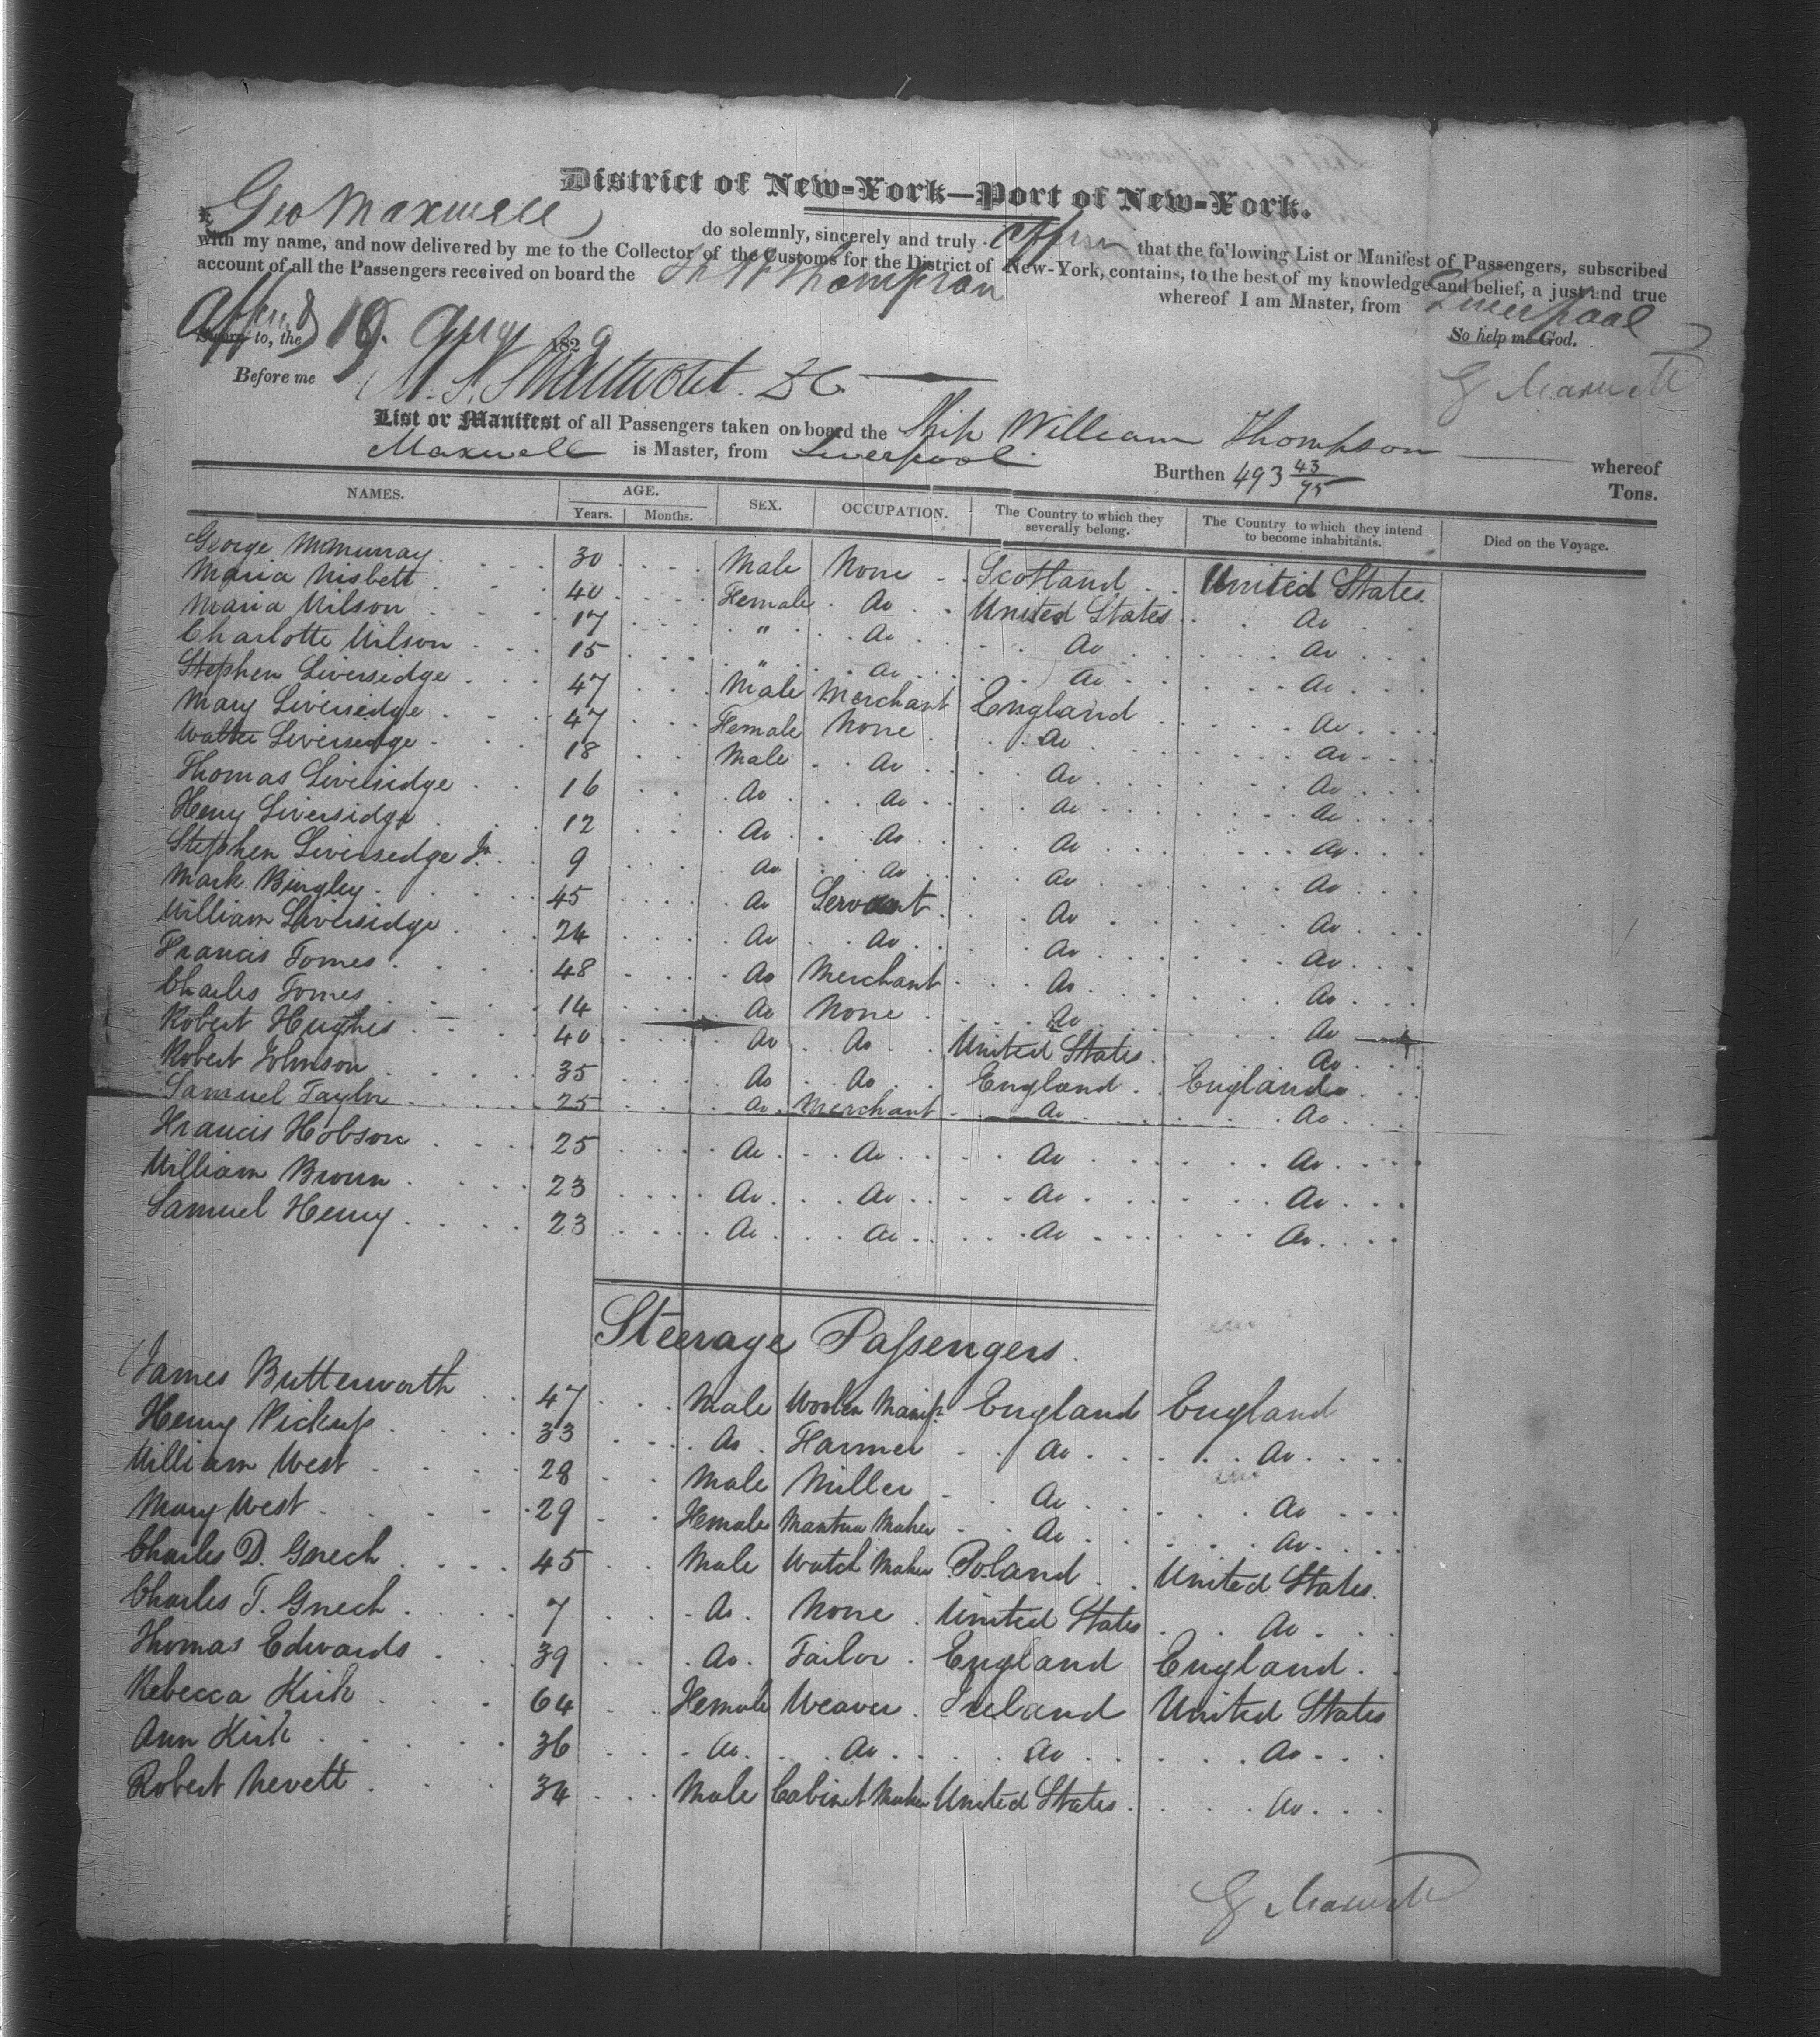 District of New-York—Port of New-York.
I, Geo Maxwell do solemnly, sincerely and truly affirm that the following List or Manifest of Passengers, subscribed
with my name, and now delivered by me to the Collector of the Customs for the District of New-York, contains, to the best of my knowledge and belief, a just and true
account of all the Passengers received on board the Sh Wm Thompson whereof I am Master, from Liverpool
Affirm'd Sworn to, the 19. Augt 1829 So help me God.
Before me G Maxwell
List or Manifest of all Passengers taken on board the Ship William Thompson whereof
Maxwell is Master, from Liverpool Burthen 493 43/95 Tons.
NAMES. AGE. Years. Months. SEX. OCCUPATION. The Country to which they severally belong. The Country to which they intend to become inhabitants. Died on the Voyage.
George McMurray 30 Male None Scotland United States
Maria Nisbett 40 Female Do United States Do
Maria Wilson 17 " Do Do Do
Charlotte Wilson 15 " Do Do Do
Stephen Liversidge 47 Male Merchant England Do
Mary Liversedge 47 Female None Do Do
Walter Liversedge 18 Male Do Do Do
Thomas Liversidge 16 Do Do Do Do
Henry Liversidge 12 Do Do Do Do
Stephen Liversedge Jr. 9 Do Do Do Do
Mark Bingley 45 Do Servant Do Do
William Liversidge 24 Do Do Do Do
Francis Tomes 48 Do Merchant Do Do
Charles Tomes 14 Do None Do Do
Robert Hughes 40 Do Do United States Do
Robert Johnson 35 Do Do England England
Samuel Taylor 25 Do Merchant Do Do
Francis Hobson 25 Do Do Do Do
William Brown 23 Do Do Do Do
Samuel Henry 23 Do Do Do Do
Steerage Passengers.
James Butterworth 47 Male Woolen Manufr England England
Henry Pickup 33 Do Farmer Do Do
William West 28 Male Miller Do Do
Mary West 29 Female Mantua Maker Do Do
Charles D. Gnech 45 Male Watch Maker Poland United States
Charles T. Gnech 7 Do None United States Do
Thomas Edwards 39 Do Tailor England England
Rebecca Kirk 64 Female Weaver Ireland United States
Ann Kirk 36 Do Do Do Do
Robert Nevett 34 Male Cabinet Maker United States Do
G Maxwell